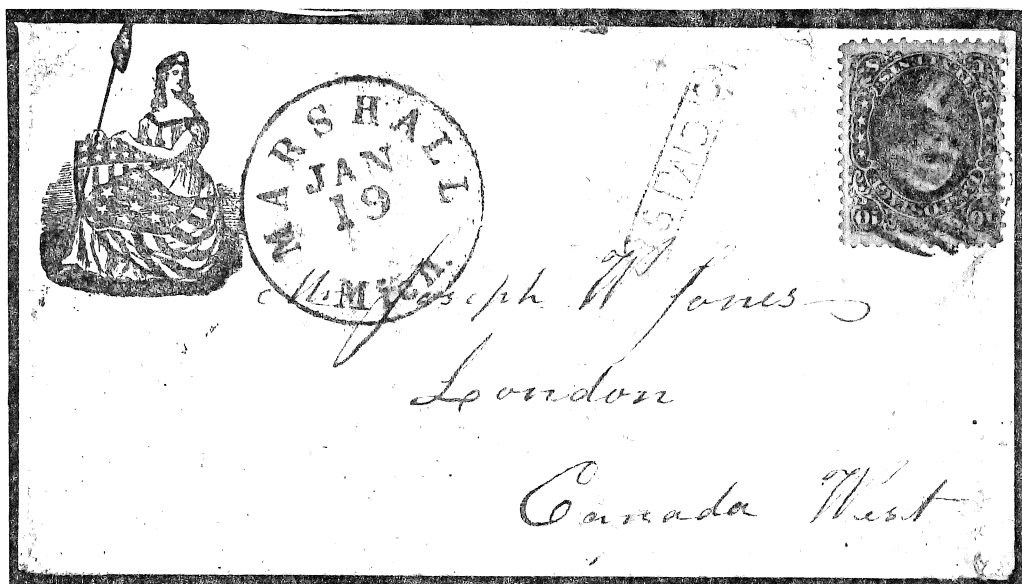 MARSHALL
JAN
19
MICH.
U.S. 10cts PAID
Mr. Joseph W Jones
London
Canada West